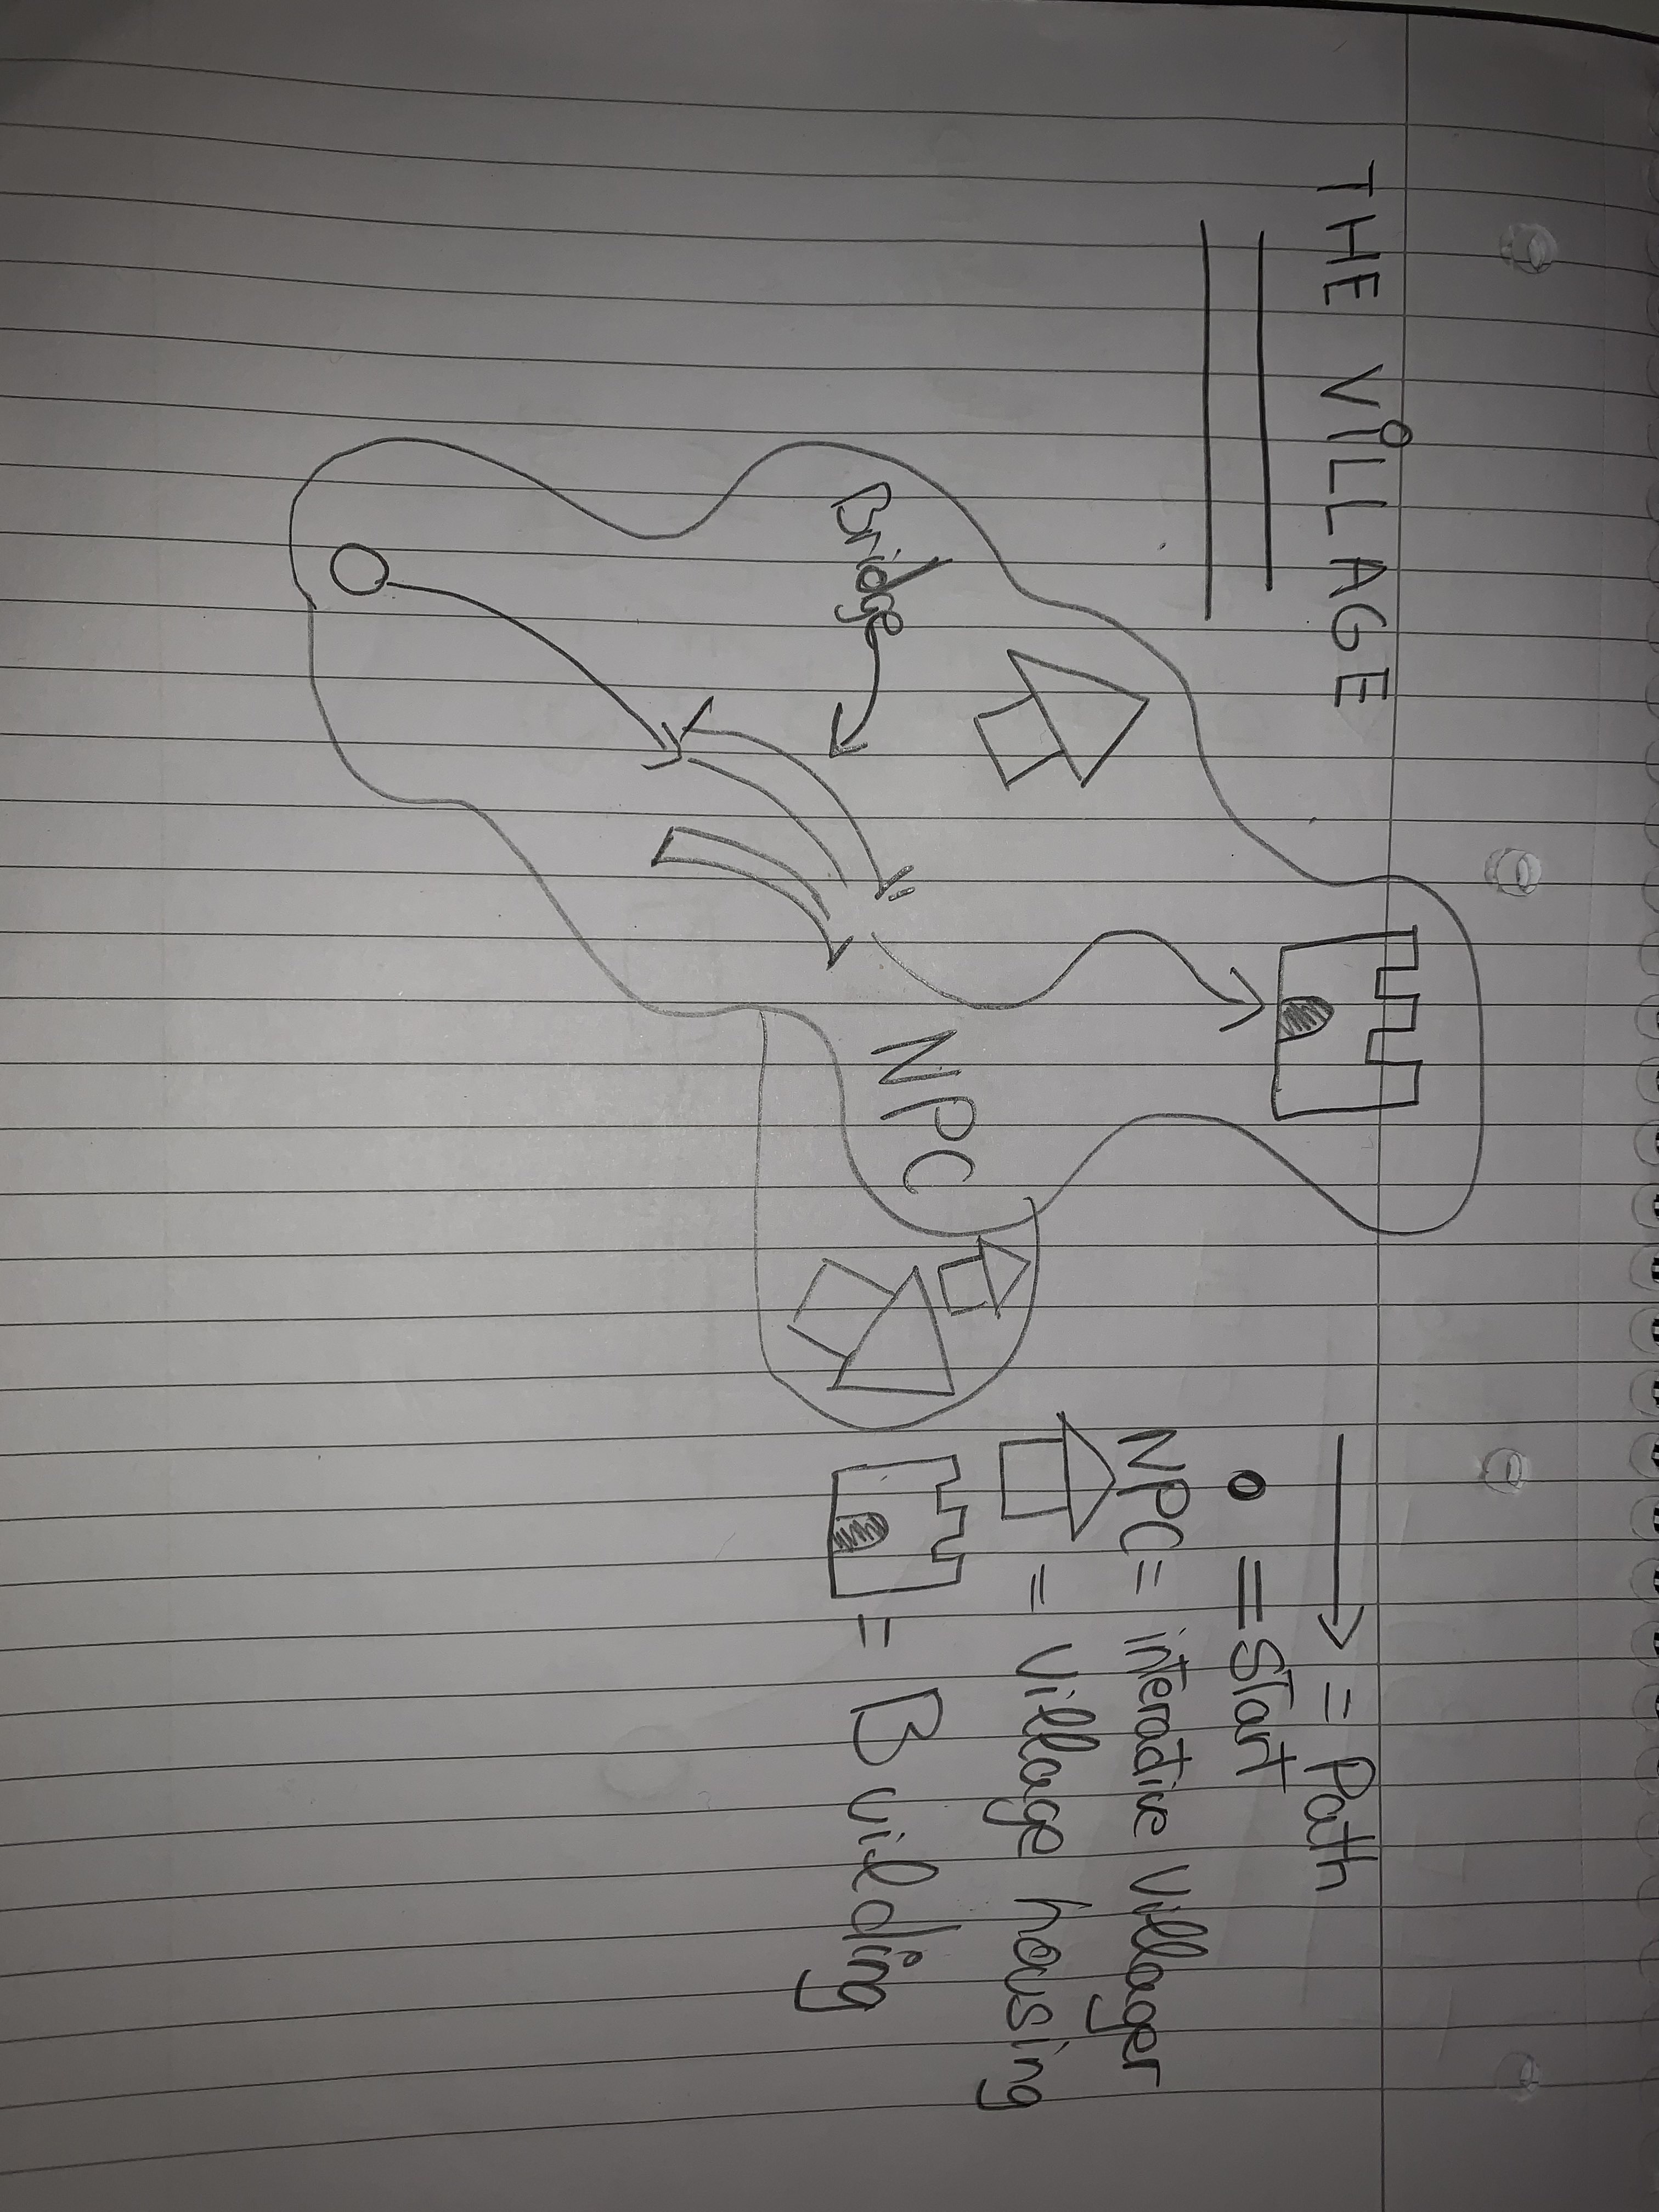 THE ViLLAGE
Bridge
NPC
= Path
= START
NPC = interactive Villager
= Village housing
= Building